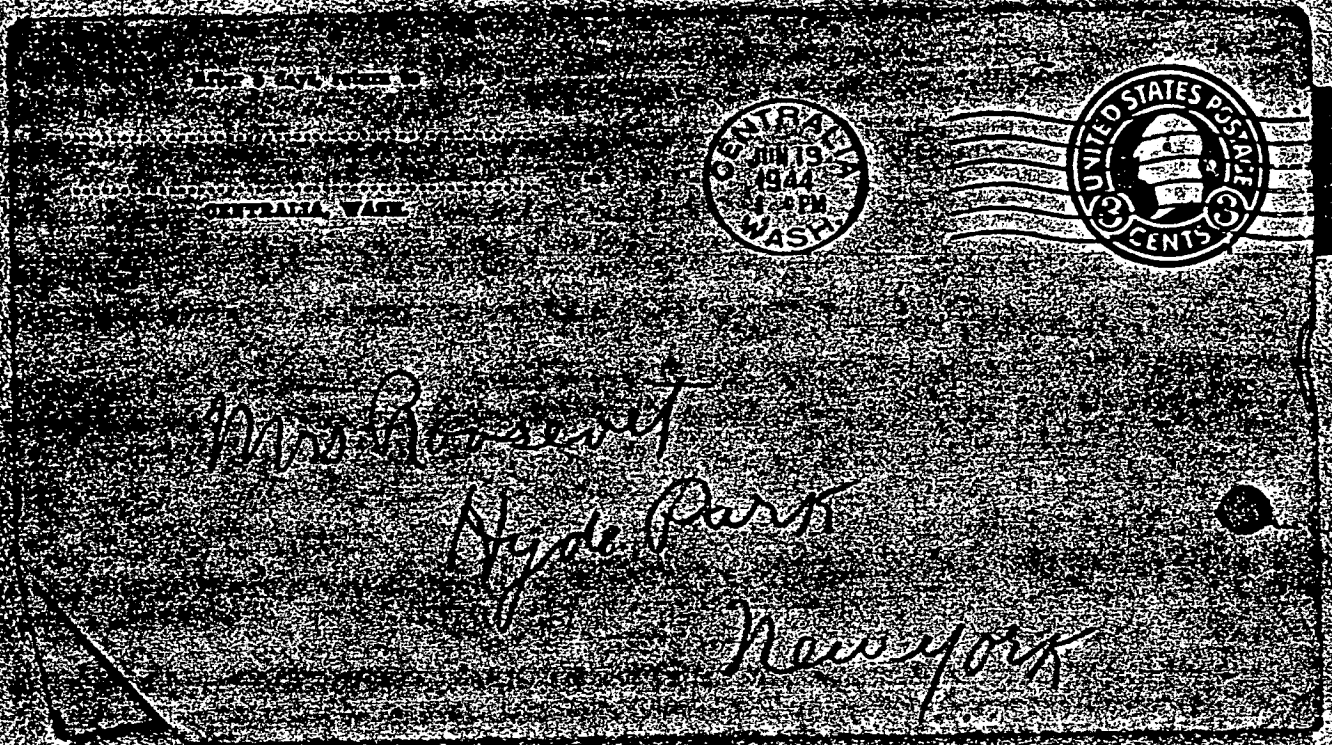 After 5 days, return to
CENTRALIA, WASH.
CENTRALIA
JUN 19
1944
PM
WASH.
UNITED STATES POSTAGE
3 3
CENTS
Mrs Roosevelt
Hyde Park
New York